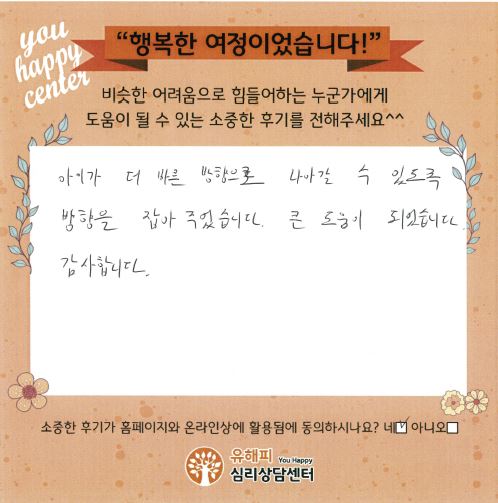 you
happy
center
“행복한 여정이었습니다!”
비슷한 어려움으로 힘들어하는 누군가에게
도움이 될 수 있는 소중한 후기를 전해주세요^^
아이가 더 바른 방향으로 나아갈 수 있도록
방향을 잡아 주었습니다. 큰 도움이 되었습니다.
감사합니다.
소중한 후기가 홈페이지와 온라인상에 활용됨에 동의하시나요? 네☑ 아니오☐
유해피 You Happy
심리상담센터